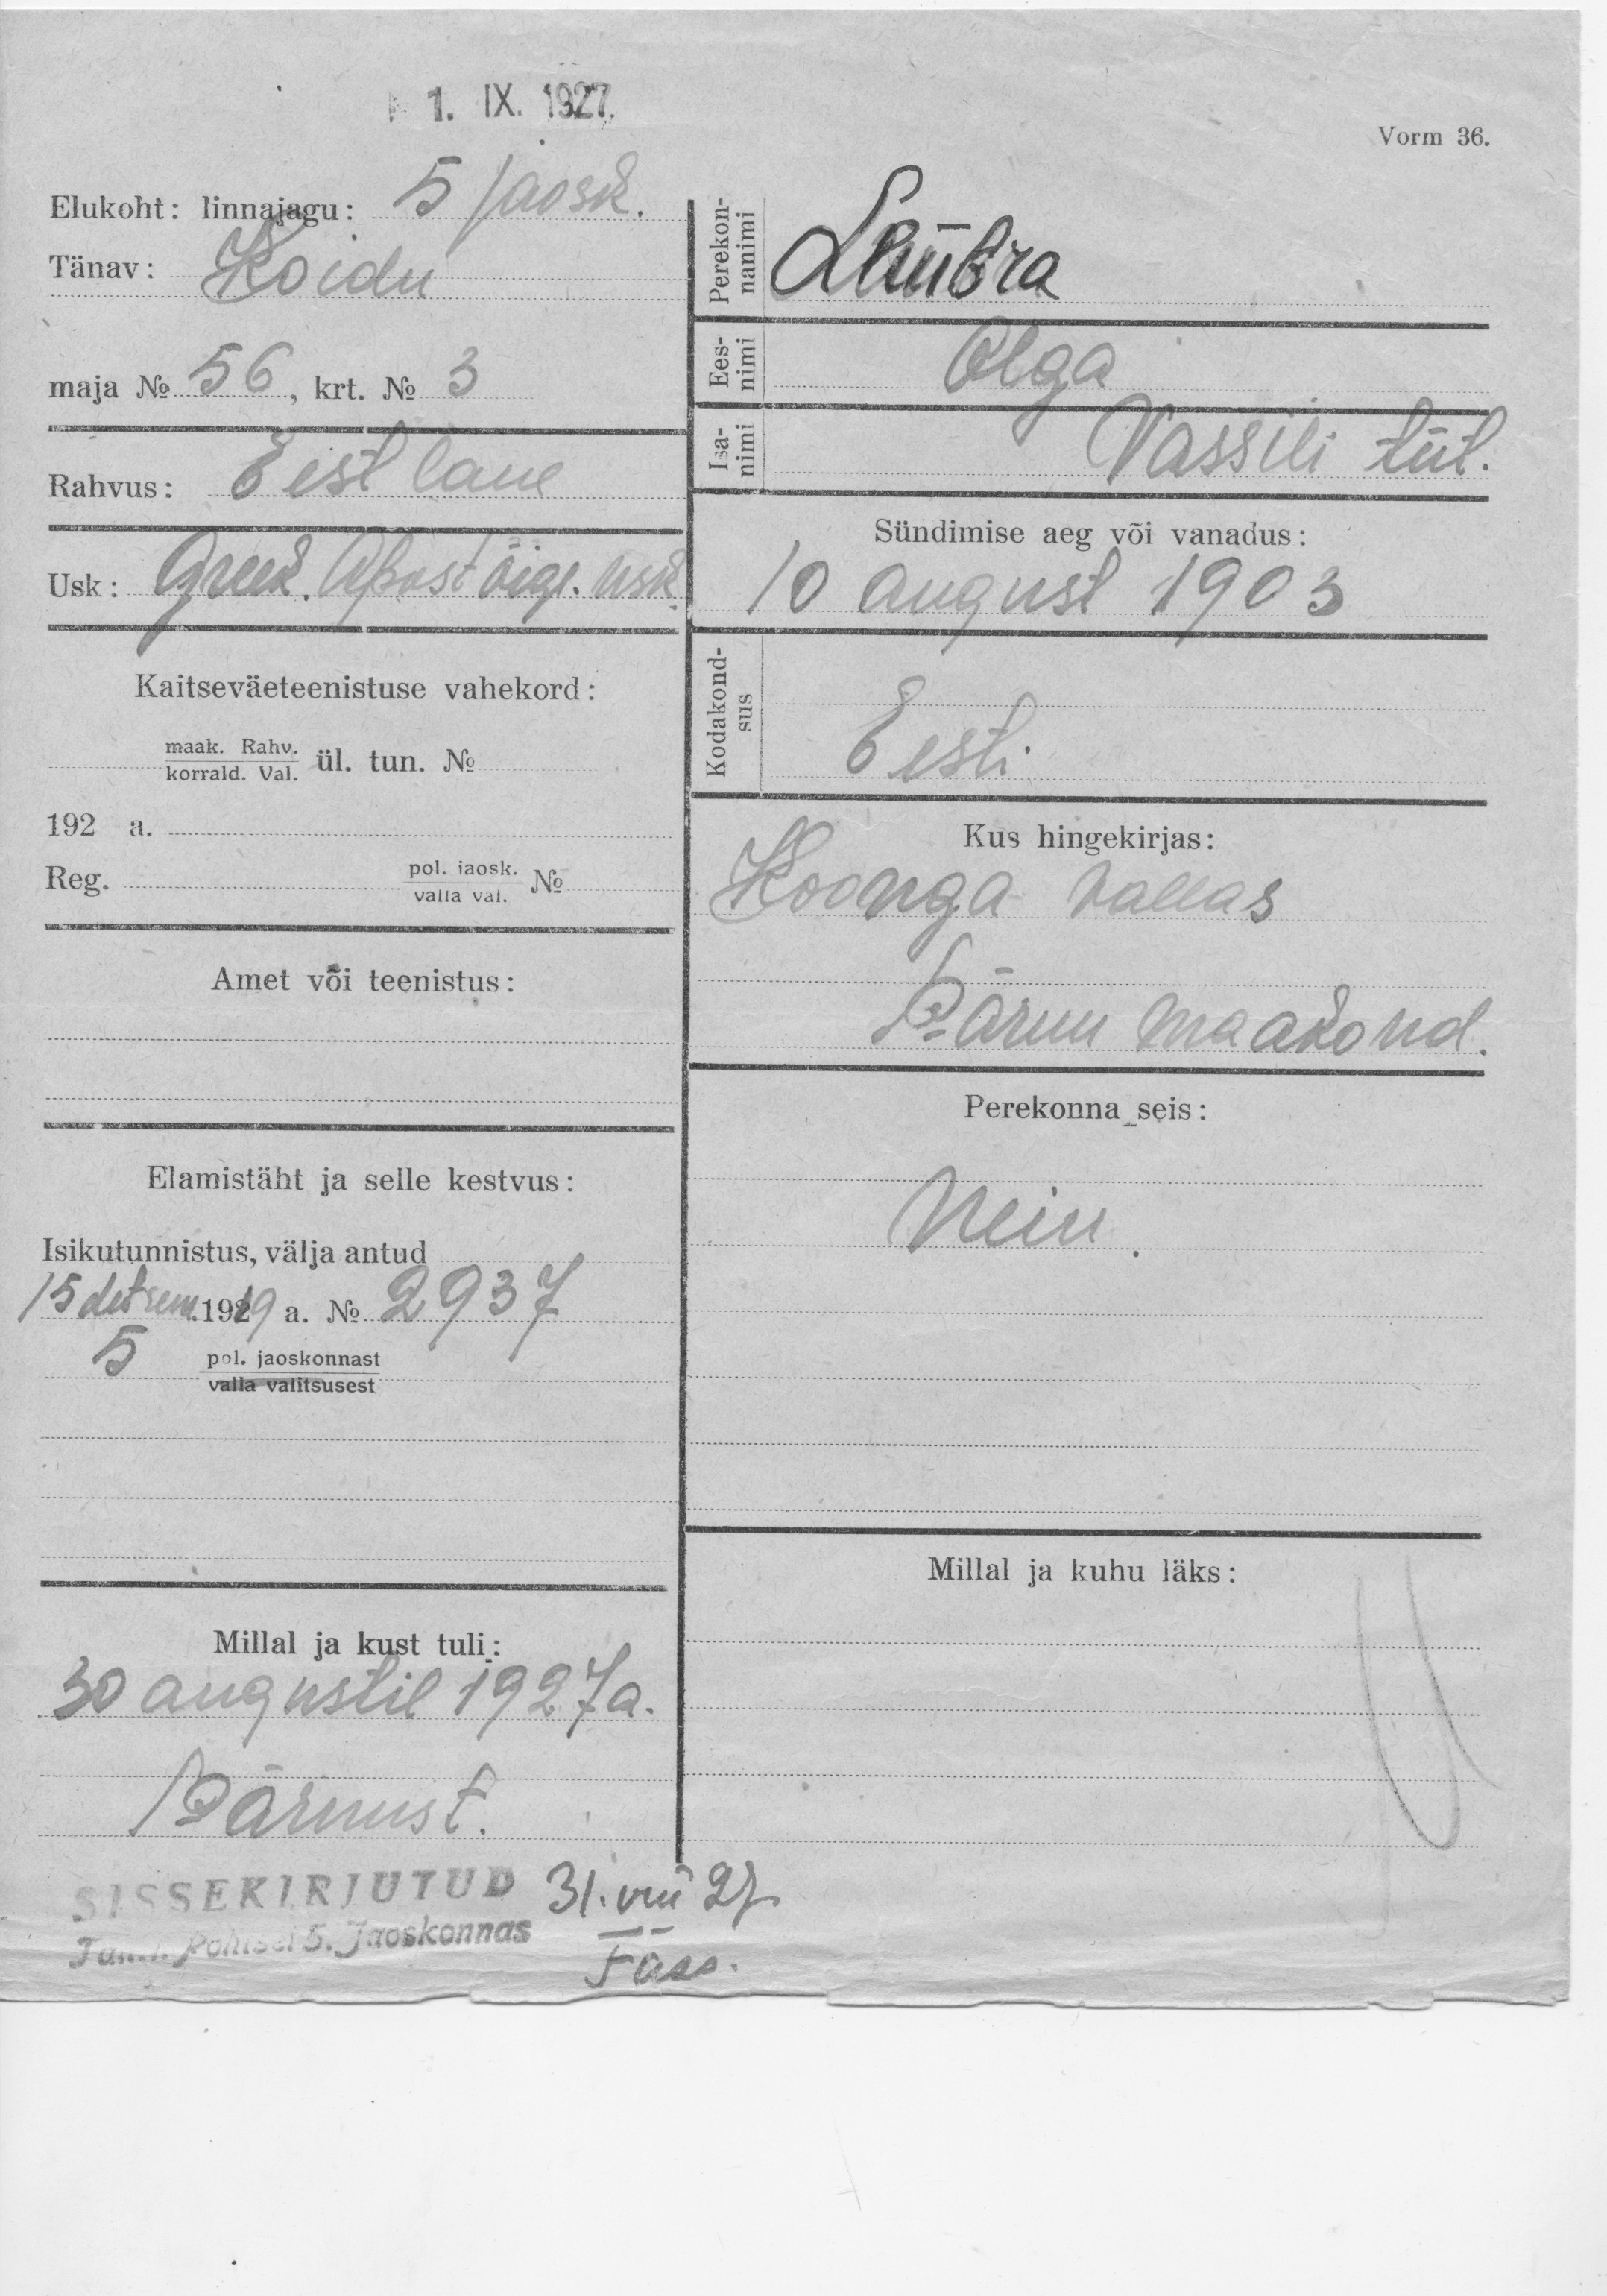 1. IX. 1927.
Vorm 36.
Elukoht: linnajagu: 5 jaosk.
Tänav: Koidu
maja № 56, krt. № 3
Rahvus: Eestlane
Usk: Greek. Apost õige. usk.
Kaitseväeteenistuse vahekord:
maak. Rahv.
korrald. Val. ül. tun. №
192 a.
Reg. pol. jaosk.
valla val. №
Amet või teenistus:
Elamistäht ja selle kestvus:
Isikutunnistus, välja antud
15 detsem. 1919 a. № 2937
5 pol. jaoskonnast
valla valitsusest
Millal ja kust tuli:
30 augustil 1927 a.
Pärnust.
SISSEKIRJUTUD 31. VIII 27
Politsei 5. Jaoskonnas
Perekonnanimi
Ees-nimi Olga
Isa-nimi Vassili tüt.
Sündimise aeg või vanadus:
10 august 1903
Kodakond-sus Eesti
Kus hingekirjas:
Koonga vallas
Pärnu maakond.
Perekonna seis:
Neiu.
Millal ja kuhu läks: